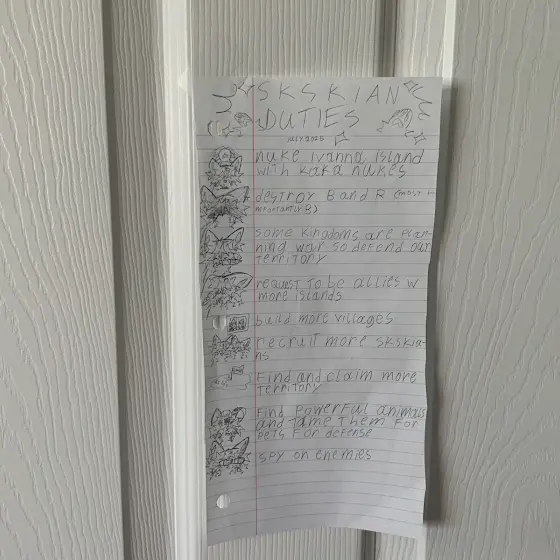 SKSKIAN
DUTIES
JULY 2025
nuke ivanna island
with kaka nukes
destroy B and R (most im
portantly B)
some kingdoms are plan-
ning war so defend our
territory
request to be allies w
more islands
build more villages
recruit more skskia-
ns
Find and claim more
territory
Find Powerful animals
and tame them for
pets for defense
spy on enemies